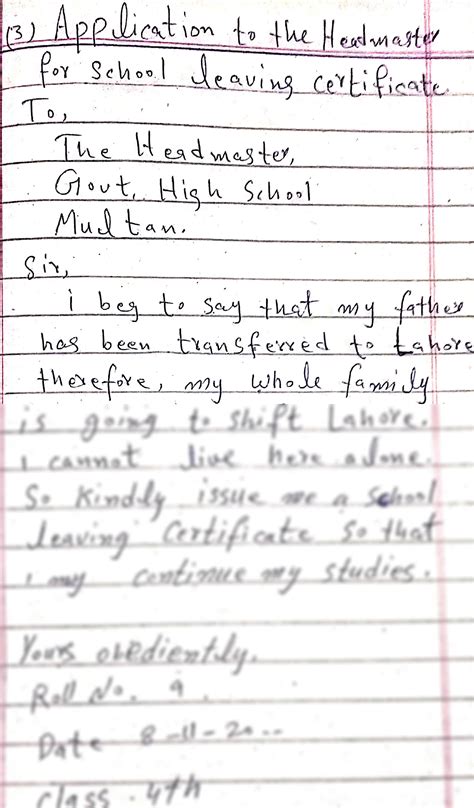 (3) Application to the Headmaster
for school leaving certificate.
To,
The Headmaster,
Govt. High School
Multan.
Sir,
i beg to say that my father
has been transferred to Lahore
therefore, my whole family
is going to shift Lahore.
I cannot live here alone.
So Kindly issue me a school
leaving Certificate so that
I my continue my studies.
Yours obediently.
Roll No. 9
Date 8-11-20..
Class. 4th